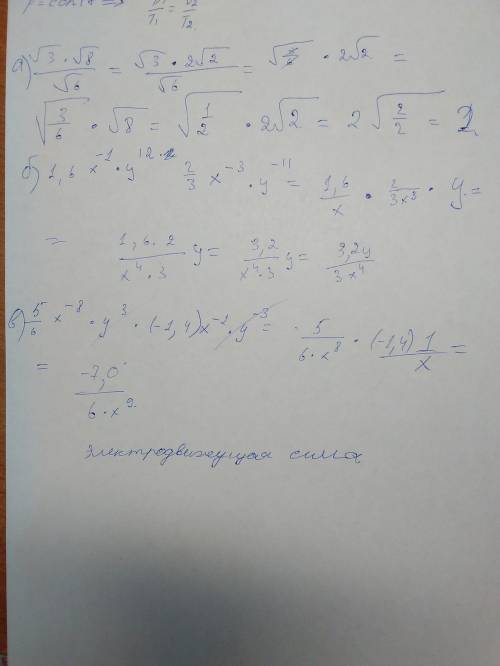 p = const => V₁/T₁ = V₂/T₂
а) (√3 · √8)/√6 = (√3 · 2√2)/√6 = √(3/6) · 2√2 =
√(3/6) · √8 = √(1/2) · 2√2 = 2√(2/2) = 2
б) 1,6 x⁻¹ · y¹² · 2/3 x⁻³ · y⁻¹¹ = 1,6/x · 2/3x³ · y =
= (1,6 · 2)/(x⁴ · 3) y = 3,2/(x⁴ · 3) y = 3,2y/(3 · x⁴)
в) 5/6 x⁻⁸ · y³ · (-1,4)x⁻¹ · y⁻³ = 5/(6 · x⁸) · (-1,4) 1/x =
= -7,0/(6 · x⁹)
электродвижущая сила